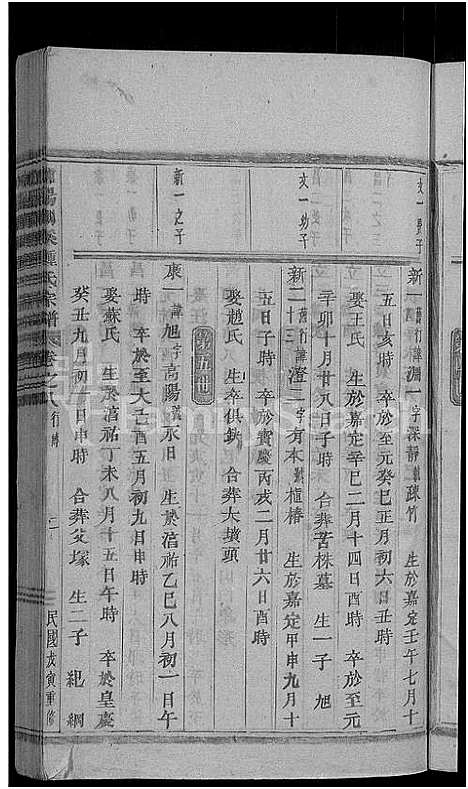 文一長子
新一 舊行諱淵一字深靜號疎竹 生於嘉定壬午七月十
五日亥時 卒於至元癸巳正月初六日丑時
娶王氏 生於嘉定辛巳二月十四日酉時 卒於至元
辛卯十月廿八日子時 合葬苦株墓 生一子 旭
文一幼子
新二 舊行十三諱澄二字有本號植椿 生於嘉定甲申九月十
五日子時 卒於寶慶丙戌二月廿六日酉時
娶趙氏 生卒俱缺 合葬大墳頭
第五世
新一之子
康一 諱旭字高陽號永日 生於淳祐乙巳八月初一日午
時 卒於至大己酉五月初九日申時
娶蘇氏 生於淳祐丁未八月十五日午時 卒於皇慶
癸丑九月初一日申時 合葬父塚 生二子 紀 綱
陽湖溪龔氏宗譜 卷之八 行傳 二 民國戊寅重修